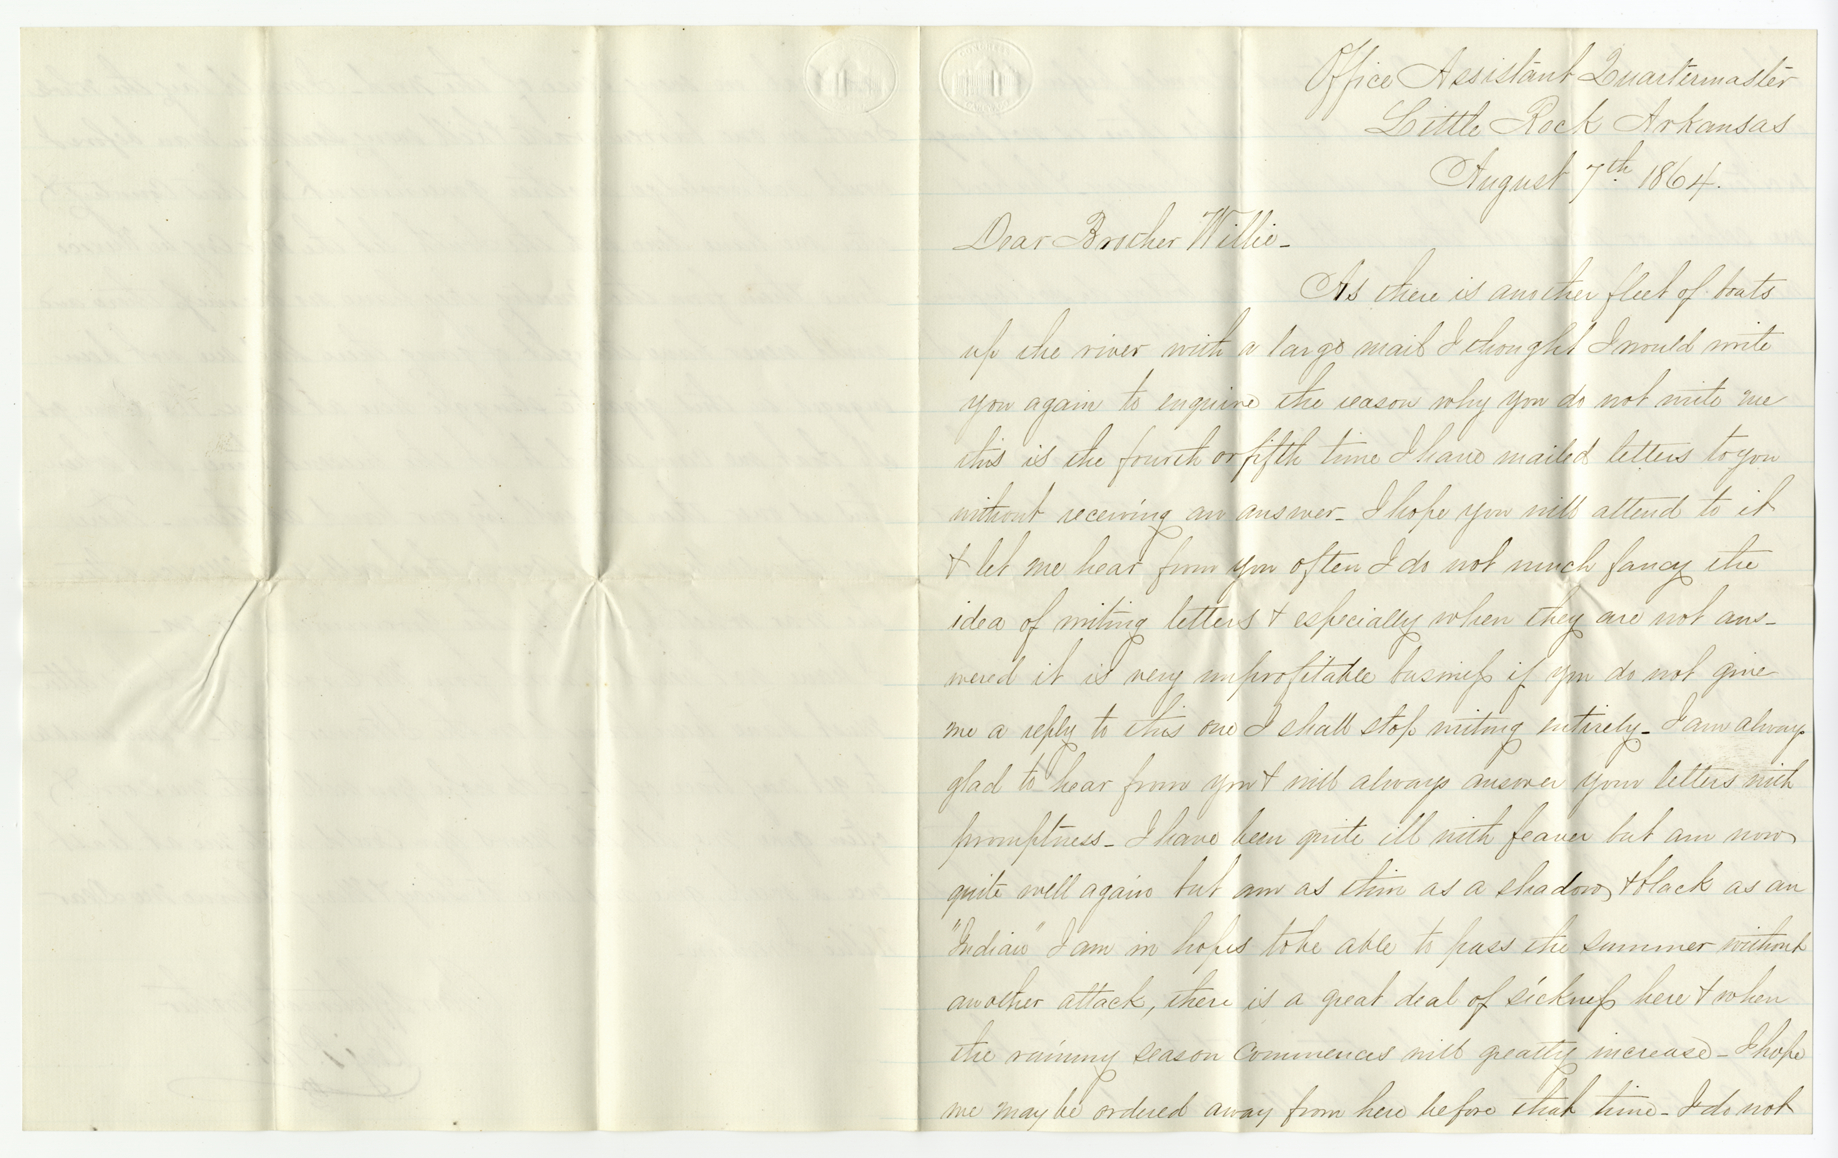 Office Assistant Quartermaster
Little Rock Arkansas
August 7th 1864.
Dear Brother Willie-
As there is another fleet of boats
up the river with a large mail I thought I would write
you again to enquire the reason why you do not write me
this is the fourth or fifth time I have mailed letters to you
without receiving an answer- I hope you will attend to it
& let me hear from you often I do not much fancy the
idea of writing letters & especially when they are not ans-
wered it is very unprofitable business if you do not give
me a reply to this one I shall stop writing entirely- I am always
glad to hear from you & will always answer your letters with
promptness- I have been quite ill with feaver but am now
quite well again but am as thin as a shadow & black as an
"Indian" I am in hopes to be able to pass the summer without
another attack, there is a great deal of sickness here & when
the rainny season commences will greatly increase- I hope
we may be ordered away from here before that time- I do not